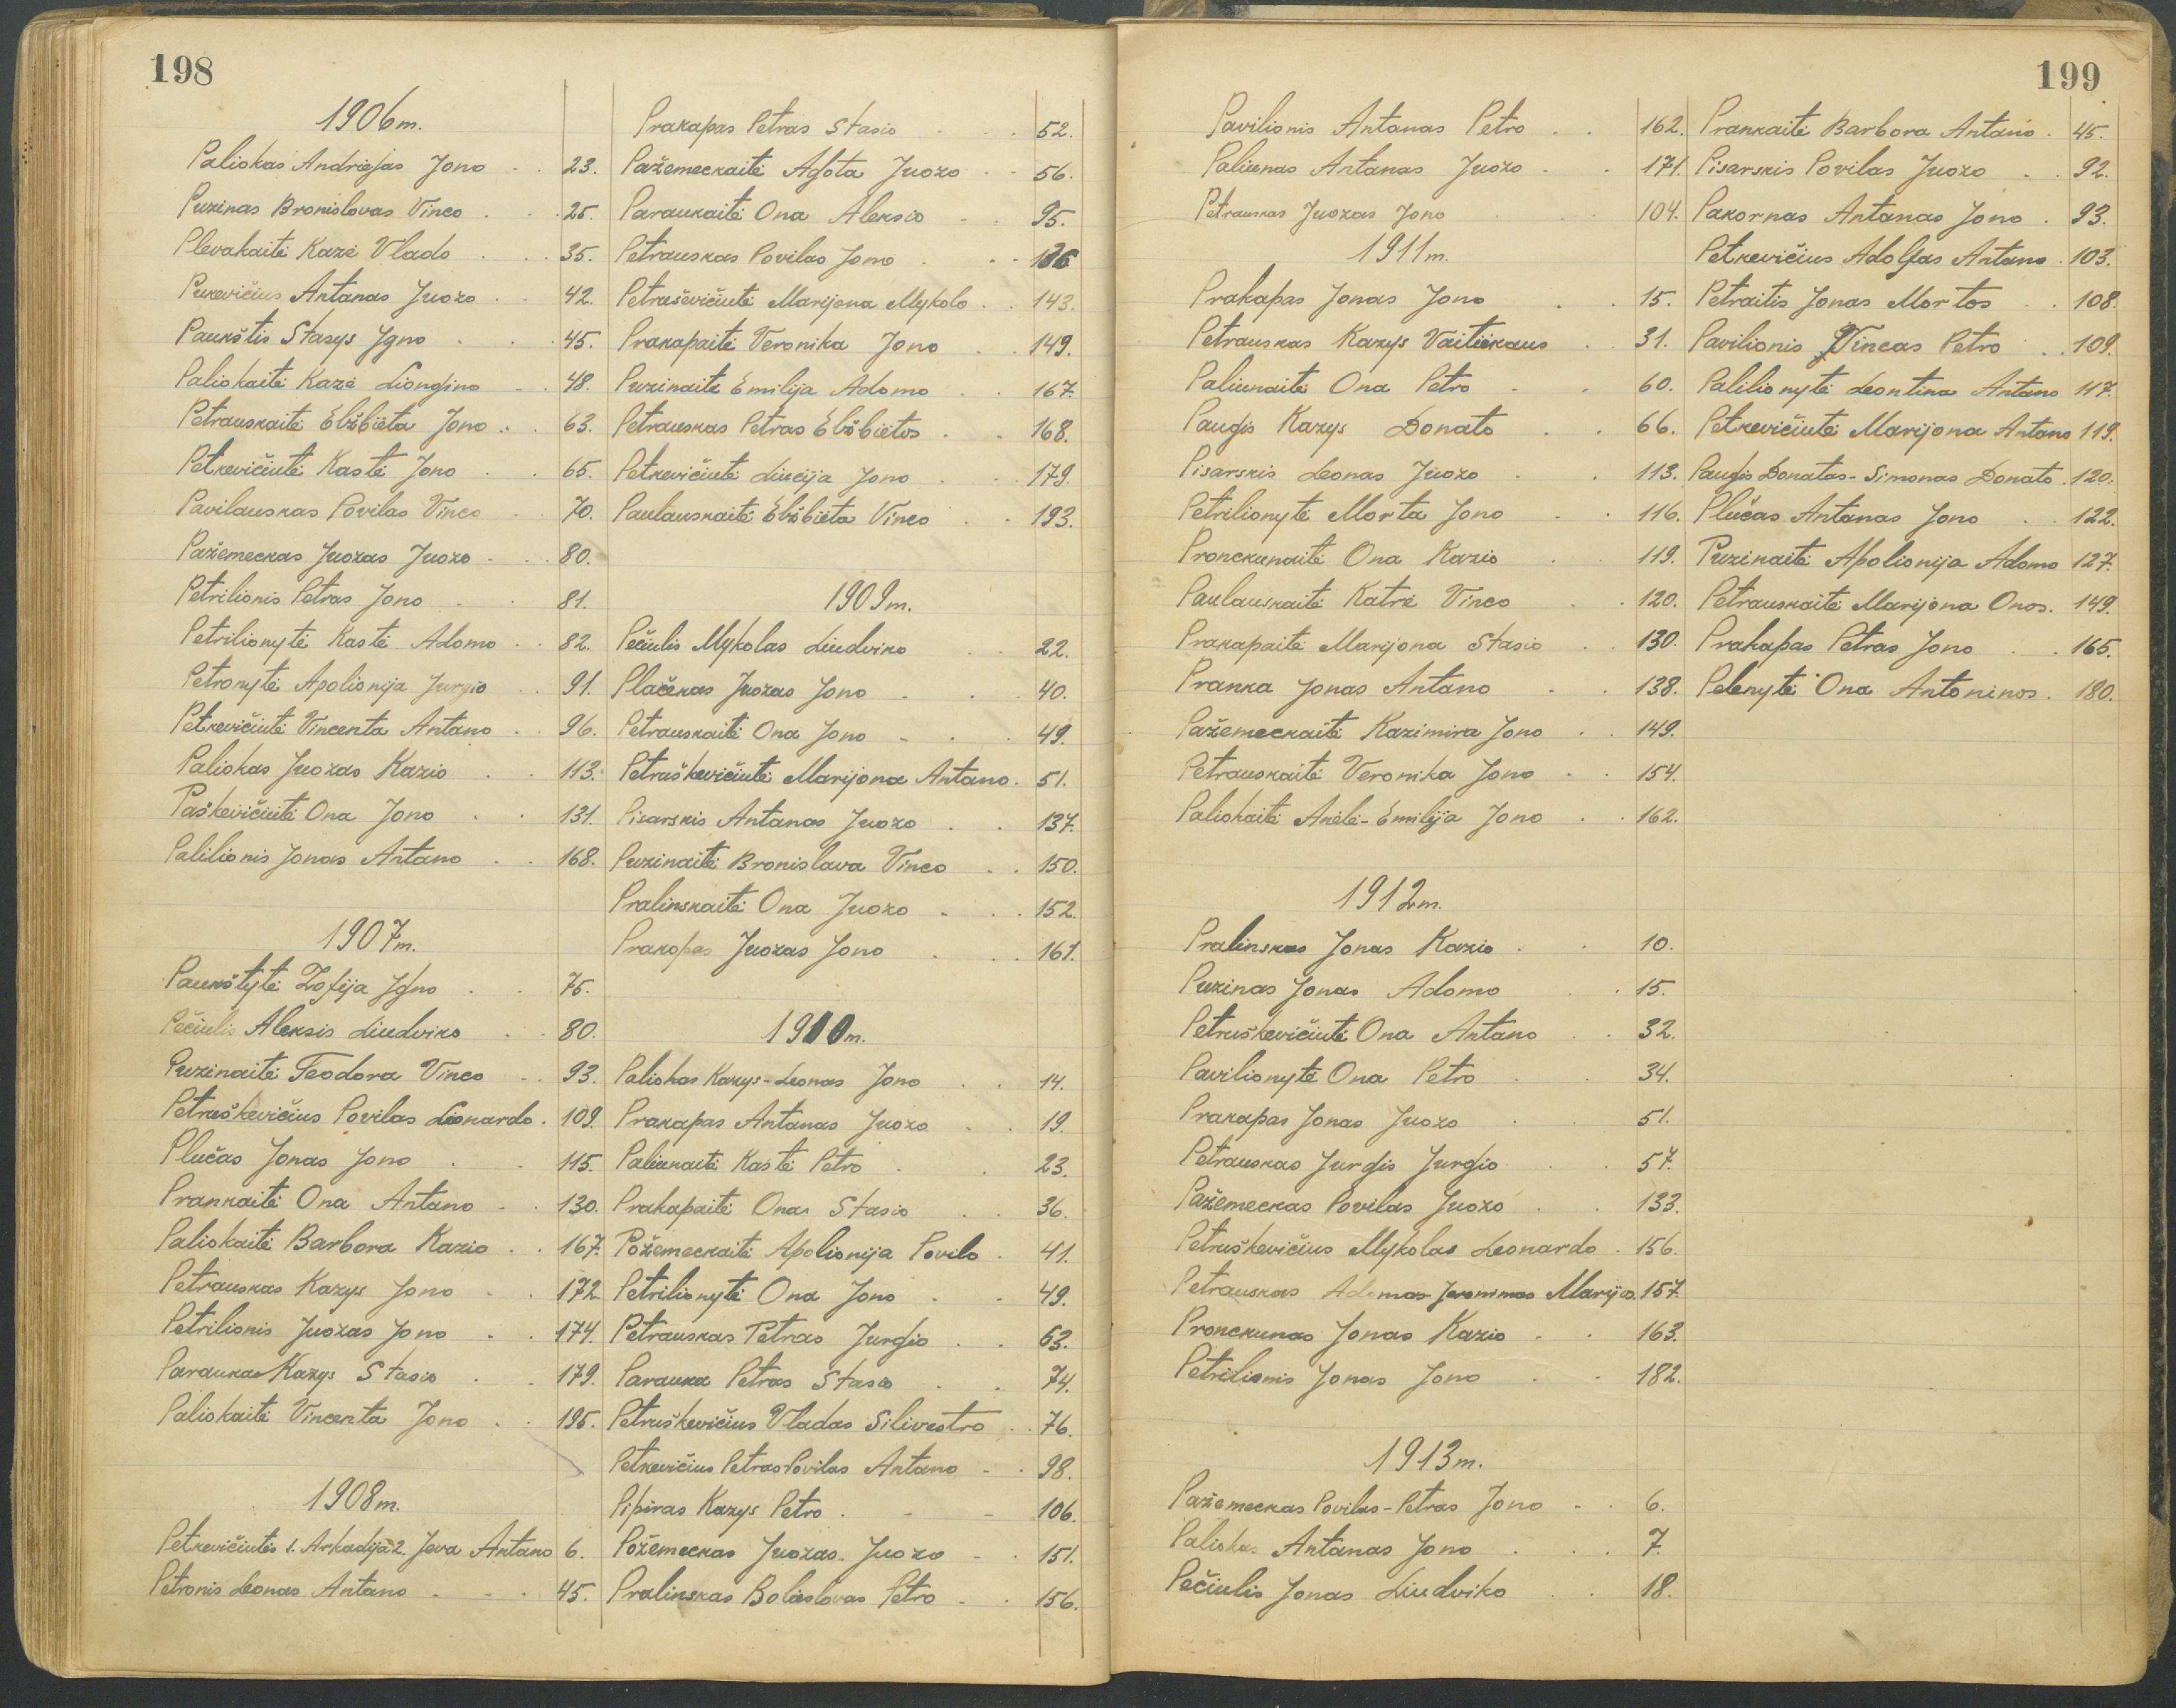 198
1906m.
Paliokas Andriejas Jono 23.
Puzinas Bronislovas Vinco 25.
Plevakaitė Kazė Vlado 35.
Pukevičius Antanas Juozo 42.
Paukštis Stasys Igno 45.
Paliokaitė Kazė Liongino 48.
Petrauskaitė Elžbieta Jono 63.
Petkevičiutė Kastė Jono 65.
Pavilauskas Povilas Vinco 70.
Pažemeckas Juozas Juozo 80.
Petrilionis Petras Jono 81.
Petrilionytė Kastė Adomo 82.
Petronytė Apolionija Jurgio 91.
Petkevičiutė Vincenta Antano 96.
Paliokas Juozas Kazio 113.
Paškevičiutė Ona Jono 131.
Palilionis Jonas Antano 168.
1907m.
Paukštytė Zofija Igno 75.
Pečiulis Aleksis Liudviko 80.
Puzinaitė Teodora Vinco 93.
Petruškevičius Povilas Leonardo 109.
Plučas Jonas Jono 115.
Prankaitė Ona Antano 130.
Paliokaitė Barbora Kazio 167.
Petrauskas Kazys Jono 172.
Petrilionis Juozas Jono 174.
Paraukas Kazys Stasio 179.
Paliokaitė Vincenta Jono 195.
1908m.
Petkevičiutės 1. Arkadija 2. Jeva Antano 6.
Petronis Leonas Antano 45.
Prakapas Petras Stasio 52.
Pažemeckaitė Agota Juozo 56.
Paraukaitė Ona Aleksio 95.
Petrauskas Povilas Jono 136
Petraševičiutė Marijona Mykolo 143.
Prakapaitė Veronika Jono 149.
Puzinaitė Emilija Adomo 167.
Petrauskas Petras Elžbietos 168.
Petkevičiutė Liucija Jono 179.
Paulauskaitė Elžbieta Vinco 193.
1909m.
Pečiulis Mykolas Liudviko 22.
Plačekas Juozas Jono 40.
Petrauskaitė Ona Jono 49.
Petruškevičiutė Marijona Antano. 51.
Pisarskis Antanas Juozo 137.
Puzinaitė Bronislava Vinco 150.
Pralinskaitė Ona Juozo 152.
Prakopas Juozas Jono 161.
1910m.
Paliokas Kazys-Leonas Jono 14.
Prakapas Antanas Juozo 19.
Paliunaitė Kastė Petro 23.
Prakapaitė Ona Stasio 36.
Požemeckaitė Apolionija Povilo 41.
Petrilionytė Ona Jono 49.
Petrauskas Petras Jurgio 63.
Parauka Petras Stasio 74.
Petruškevičius Vladas Silivestro 76.
Petkevičius Petras Povilas Antano 98.
Pipiras Kazys Petro 106.
Požemeckas Juozas Juozo 151.
Pralinskas Boleslovas Petro 156.
199
Pavilionis Antanas Petro 162.
Paliunas Antanas Juozo 171.
Petrauskas Juozas Jono 104.
1911m.
Prakapas Jonas Jono 15.
Petrauskas Kazys Vaitiekaus 31.
Paliunaitė Ona Petro 60.
Paugis Kazys Donato 66.
Pisarskis Leonas Juozo 113.
Petrilionytė Morta Jono 116.
Pronckunaitė Ona Kazio 119.
Paulauskaitė Katrė Vinco 120.
Prakapaitė Marijona Stasio 130.
Pranka Jonas Antano 138.
Pažemeckaitė Kazimira Jono 149.
Petrauskaitė Veronika Jono 154.
Paliokaitė Anelė-Emilija Jono 162.
1912m.
Pralinskas Jonas Kazio 10.
Puzinas Jonas Adomo 15.
Petruškevičiutė Ona Antano 32.
Pavilionytė Ona Petro 34.
Prakapas Jonas Juozo 51.
Petrauskas Jurgis Jurgio 57.
Pažemeckas Povilas Juozo 133.
Petruškevičius Mykolas Leonardo 156.
Petrauskas Adomas Jeronimas Marijos 157.
Pronckunas Jonas Kazio 163.
Petrilionis Jonas Jono 182.
1913m.
Pažemeckas Povilas-Petras Jono 6.
Paliokas Antanas Jono 7.
Pečiulis Jonas Liudviko 18.
Prankaitė Barbora Antano 45.
Pisarskis Povilas Juozo 92.
Pakornas Antanas Jono 93.
Petkevičius Adolfas Antano 103.
Petraitis Jonas Mortos 108.
Pavilionis Vincas Petro 109.
Palilionytė Leontina Antano 117.
Petkevičiutė Marijona Antano 119.
Paugis Donatas-Simonas Donato 120.
Plučas Antanas Jono 122.
Puzinaitė Apolionija Adomo 127.
Petrauskaitė Marijona Onos. 149.
Prakapas Petras Jono 165.
Pelenytė Ona Antoninos. 180.